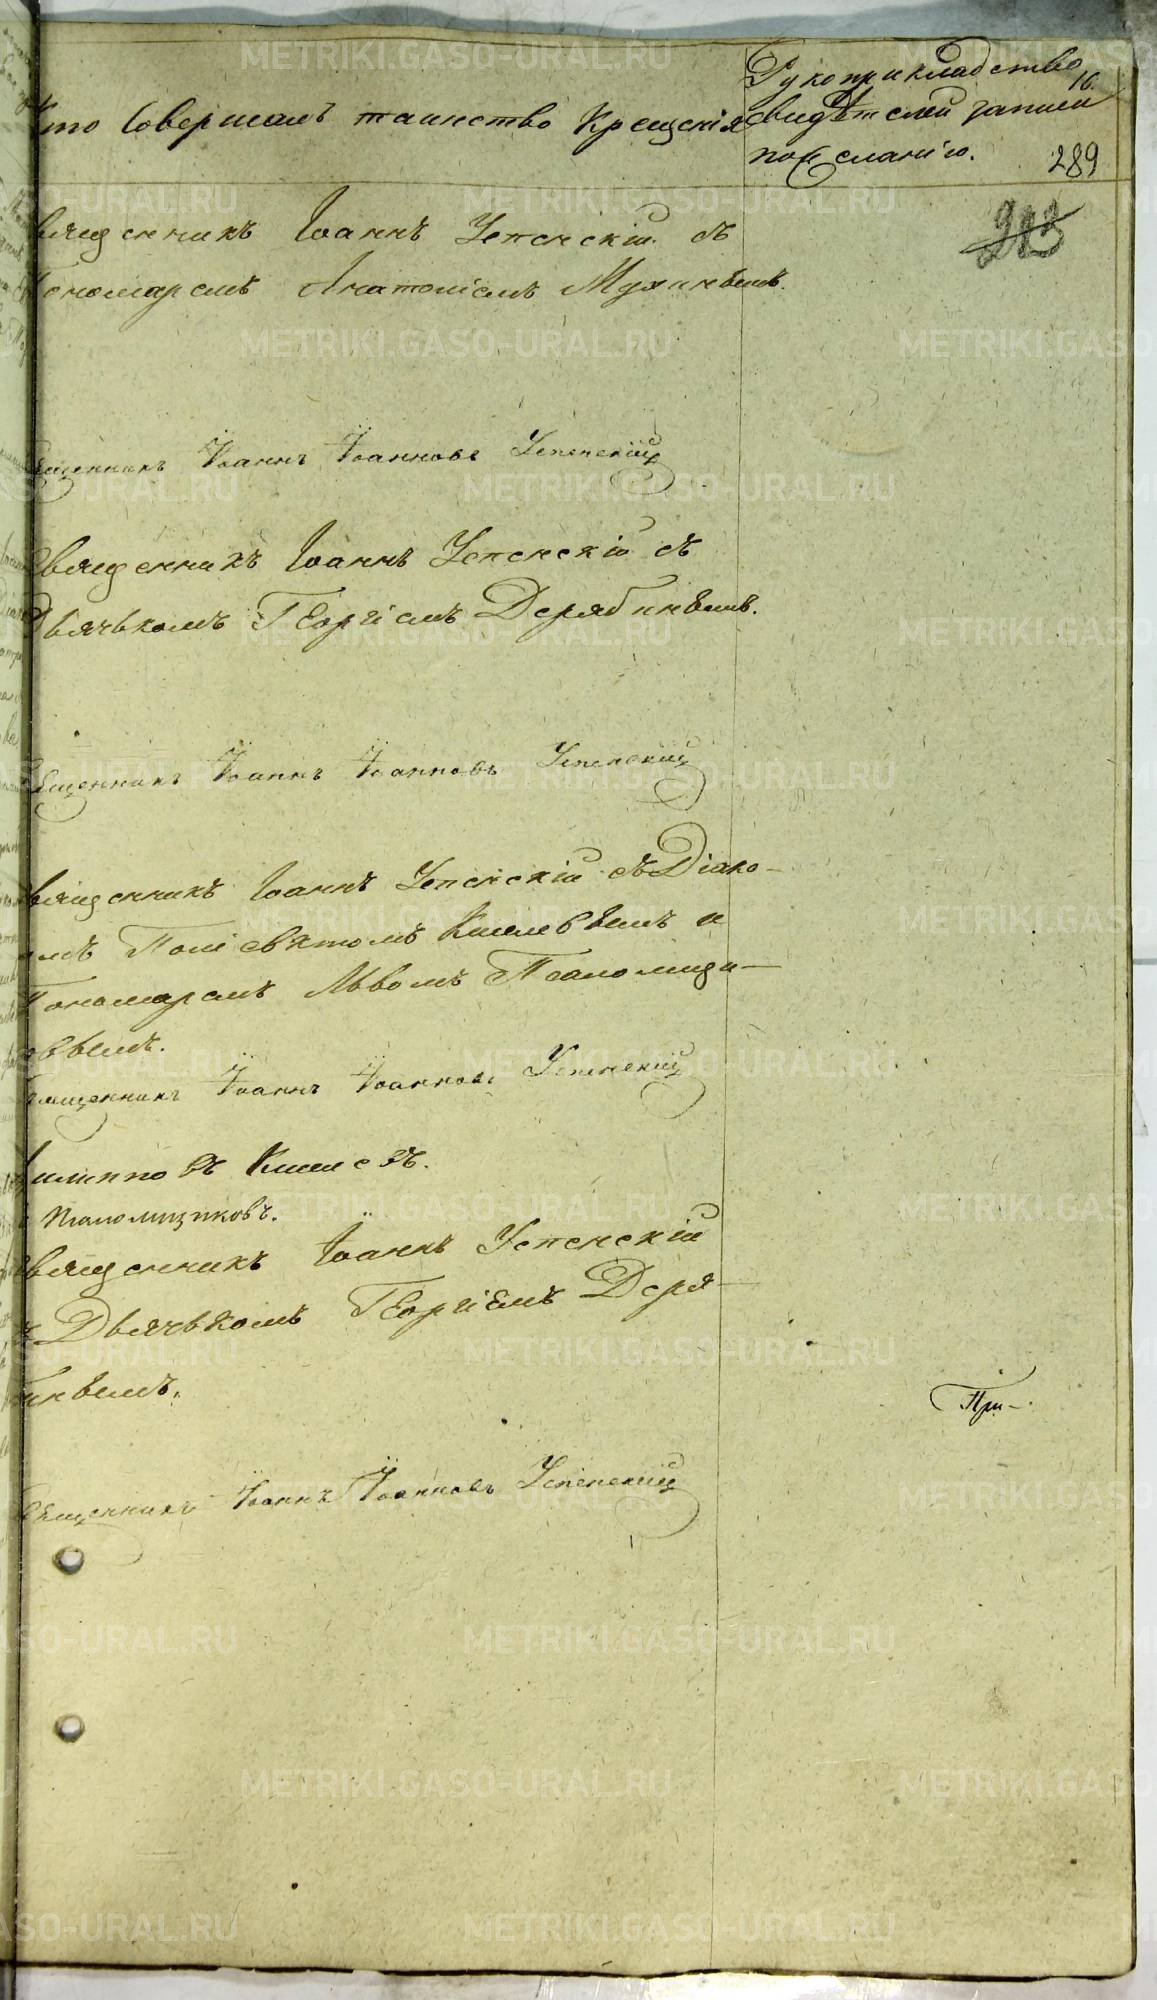 Кто Совершалъ таинство Крещенія
Рукоприкладство
16.
свидѣтелей записи
по желанію.
289
Священникъ Іоаннъ Успенскій съ
Пономаремъ Анатоліемъ Мухинымъ.
Священникъ Іоаннъ Іоанновъ Успенскій
Священникъ Іоаннъ Успенскій съ
Дьячькомъ Георгіемъ Дерябинымъ.
Священникъ Іоаннъ Іоанновъ Успенскій
Священникъ Іоаннъ Успенскій съ Діако-
номъ Поліевктомъ Киселевымъ и
Пономаремъ Львомъ Псаломщи-
ковымъ.
Священникъ Іоаннъ Іоанновъ Успенскій
Филипповъ Киселевъ.
Псаломщиковъ.
Священникъ Іоаннъ Успенскій
съ Дьячькомъ Георгіемъ Деря-
бинымъ.
При-
Священникъ Іоаннъ Іоанновъ Успенскій
METRIKI.GASO-URAL.RU